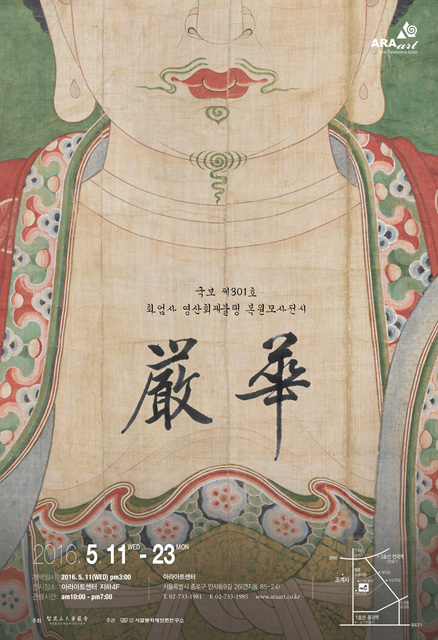 ARAart
국보 제301호
화엄사 영산회괘불탱 복원모사전시
嚴 華
2016. 5.11 WED - 23 MON
개막일시: 2016. 5. 11(WED) pm3:00
전시장소: 아라아트센터 지하4F
관람시간: am10:00 - pm7:00
아라아트센터
서울특별시 종로구 인사동9길 26(견지동 85-24)
T. 02-733-1981 F. 02-733-1985 www.araart.co.kr
3호선 안국역
조계사
1호선 종각역
주최
주관 서찰문화재보존연구소